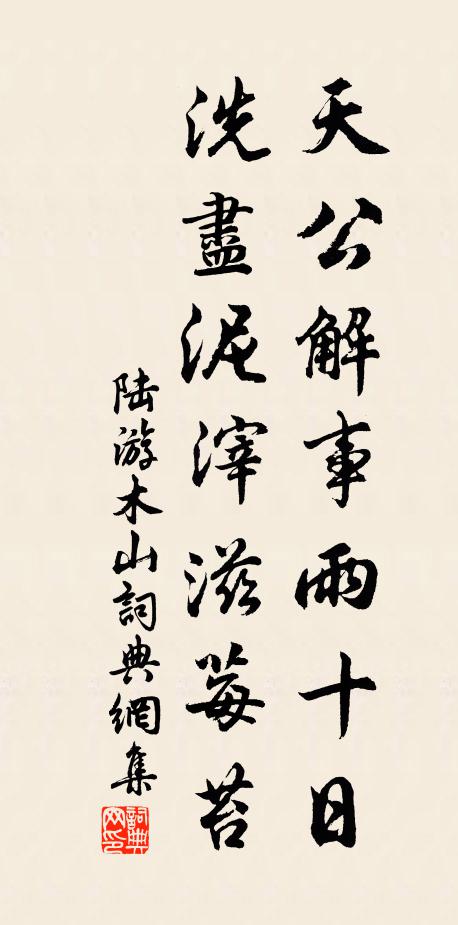 天公解事雨十日
洗盡泥滓滋莓苔
陆游木山詞典網集
詞典網印